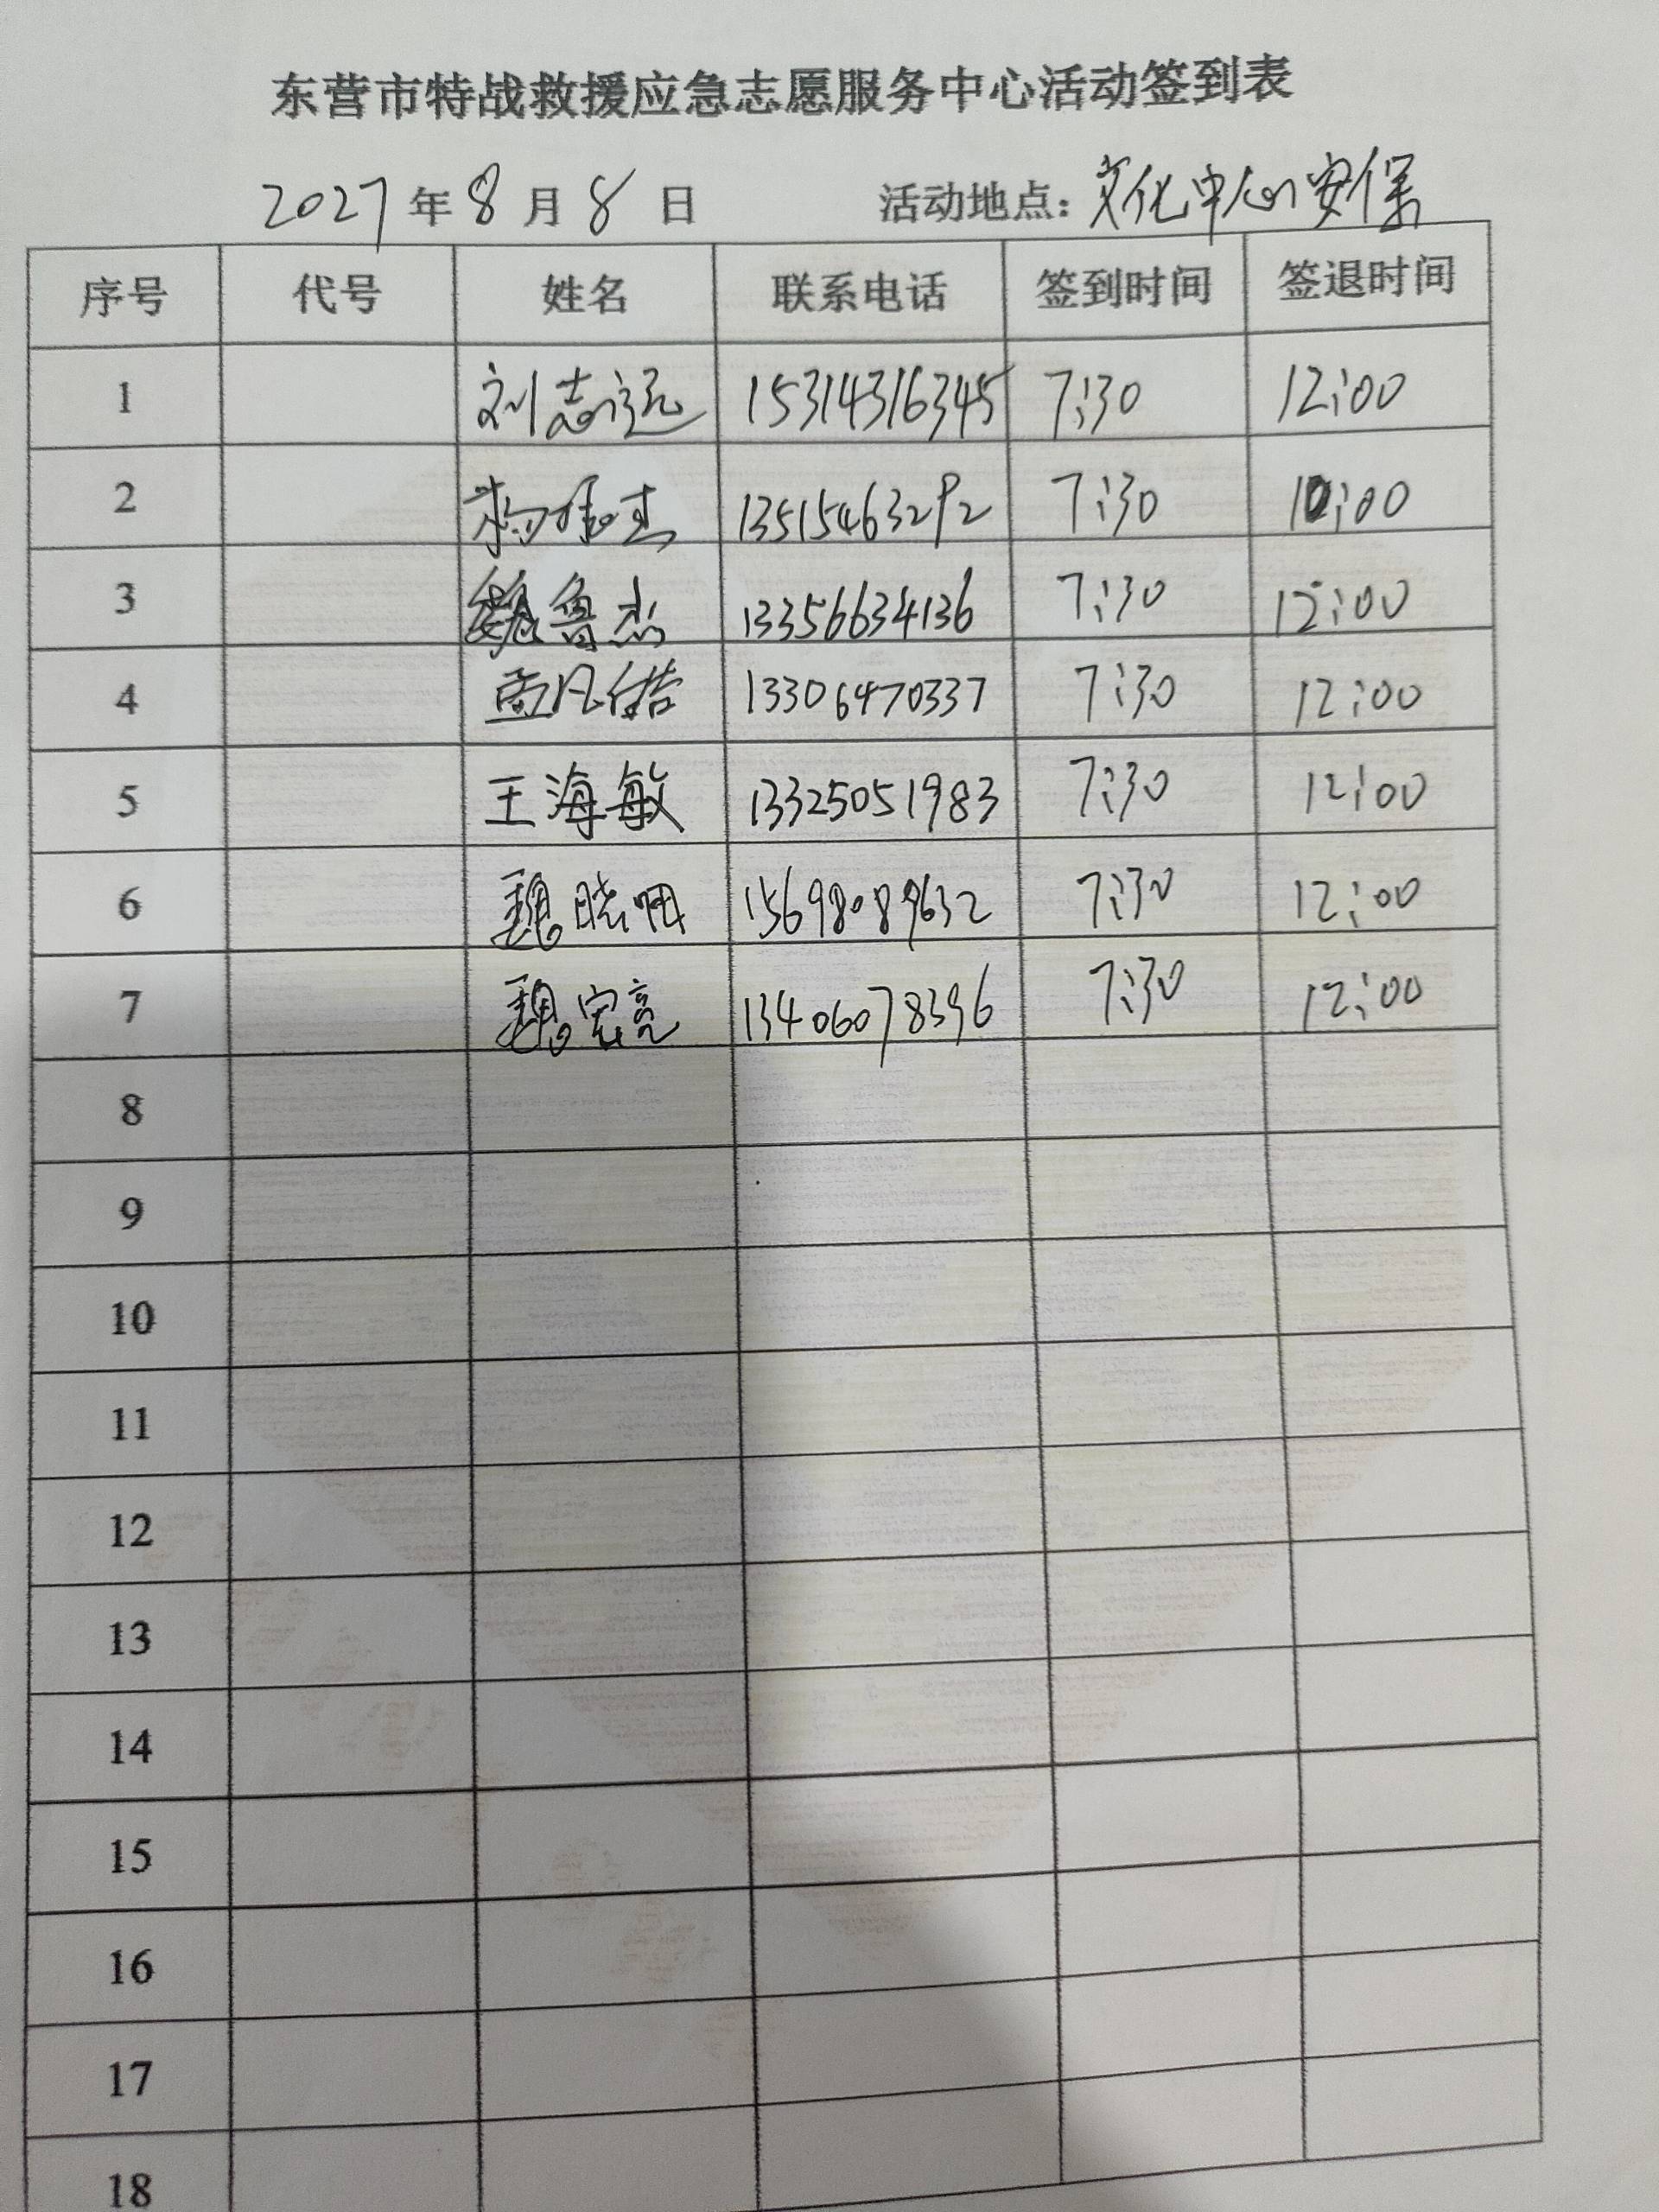 东营市特战救援应急志愿服务中心活动签到表
2027年8月8日 活动地点：文化中心安保
序号 代号 姓名 联系电话 签到时间 签退时间
1 刘志远 15314316345 7:30 12:00
2 13515463292 7:30 10:00
3 魏鲁杰 13356634136 7:30 12:00
4 13306470337 7:30 12:00
5 王海敏 13325051983 7:30 12:00
6 魏晓 15698089632 7:30 12:00
7 魏宏亮 13406078396 7:30 12:00
8
9
10
11
12
13
14
15
16
17
18